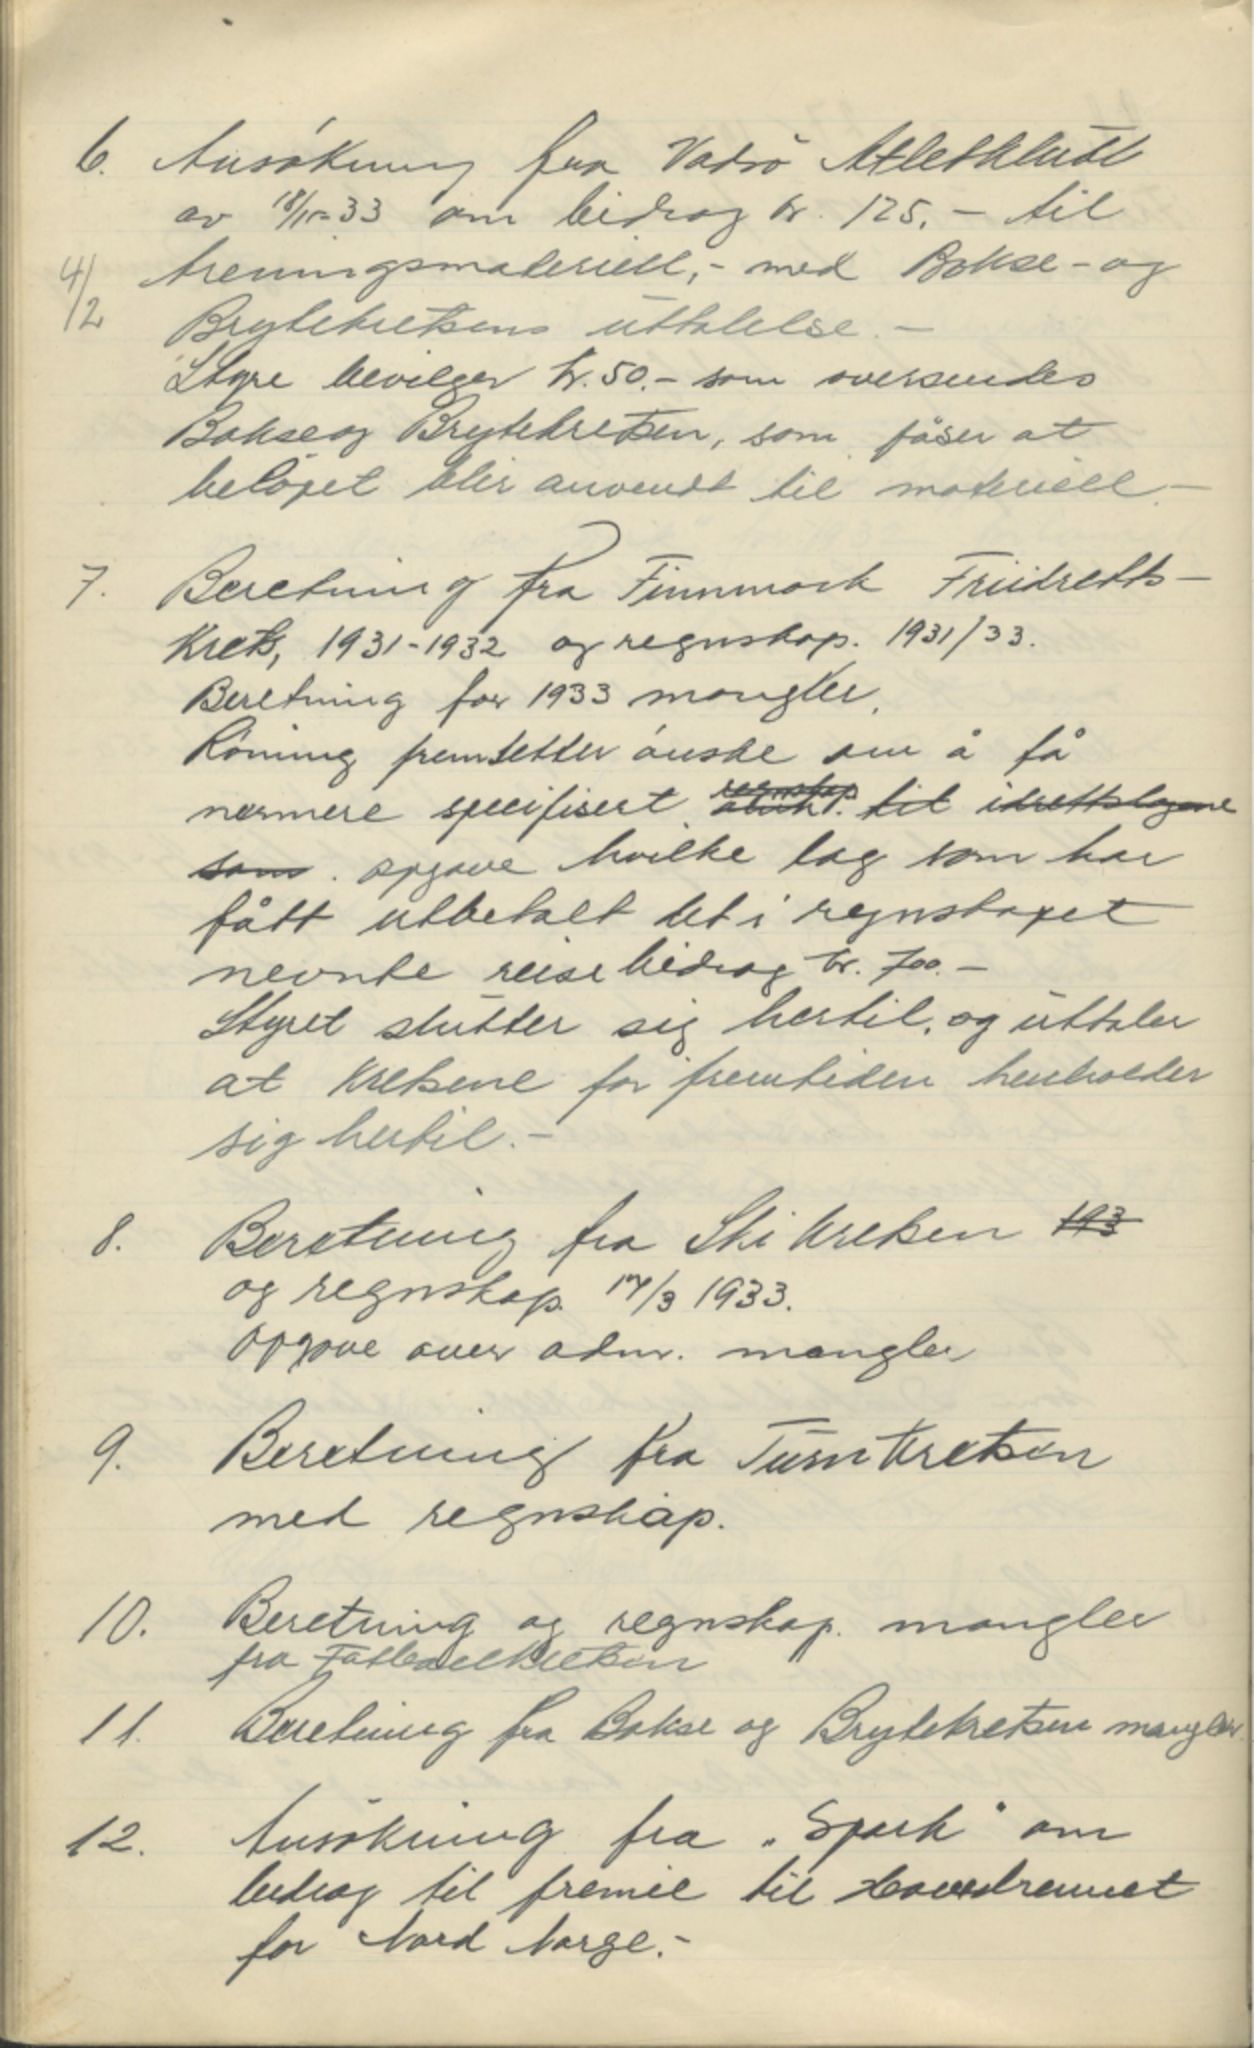 6. Ansökning fra Vadsö Atletklubb
av 18/10-33 om bidrag kr. 125.- til
4/2 treningsmateriell,- med Bokse- og
Brytekretsens uttalelse.-
Styre bevilger kr. 50.- som oversendes
Bokse og Brytekretsen, som påser at
belöpet blir anvendt til materiell.-
7. Beretning fra Finnmark Friidretts-
Krets, 1931-1932 og regnskap. 1931/33.
Beretning for 1933 mangler.
Röning fremsetter önske om å få
nærmere specifisert regnskap til idrettslagene
som. opgave hvilke lag som har
fått utbetalt det i regnskapet
nevnte reisebidrag kr. 700.-
Styret slutter sig hertil, og uttaler
at kretsene for fremtiden henholder
sig hertil.-
8. Beretning fra Ski kretsen 193
og regnskap 17/3 1933.
Opgave over adm. mangler
9. Beretning fra Turnkretsen
med regnskap.
10. Beretning og regnskap. mangler
fra Fotballkretsen
11. Beretning fra Bokse og Brytekretsen mangler
12. Ansökning fra „Spark" om
bidrag til premie til Hovedrennet
for Nord Norge.-